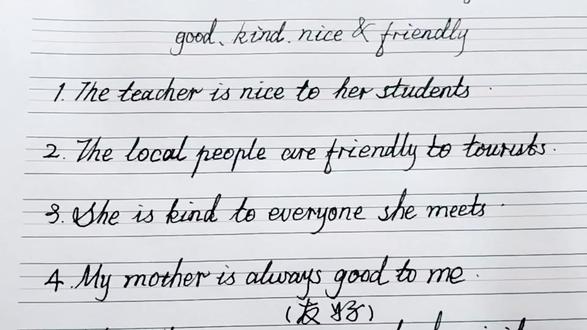 good、kind. nice & friendly
1. The teacher is nice to her students.
2. The local people are friendly to tourists.
3. She is kind to everyone she meets.
4. My mother is always good to me.
(友好)